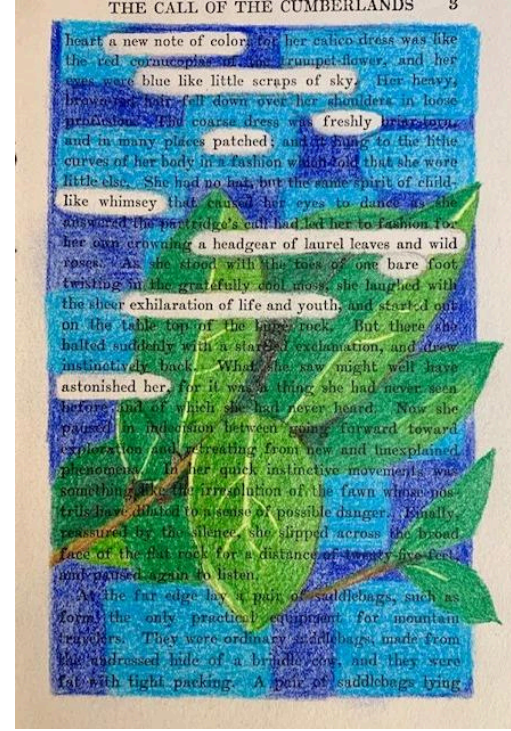 THE CALL OF THE CUMBERLANDS 3
heart a new note of color, for her calico dress was like
the red cornucopias of the trumpet-flower, and her
eyes were blue like little scraps of sky. Her heavy,
brown-red hair fell down over her shoulders in loose
profusion. The coarse dress was freshly briar-torn,
and in many places patched; and it hung to the lithe
curves of her body in a fashion which told that she wore
little else. She had no hat, but the same spirit of child-
like whimsey that caused her eyes to dance as she
answered the partridge's call had led her to fashion for
her own crowning a headgear of laurel leaves and wild
roses. As she stood with the toes of one bare foot
twisting in the gratefully cool moss, she laughed with
the sheer exhilaration of life and youth, and started out
on the table top of the huge rock. But there she
halted suddenly with a startled exclamation, and drew
instinctively back. What she saw might well have
astonished her, for it was a thing she had never seen
before and of which she had never heard. Now she
paused in indecision between going forward toward
exploration and retreating from new and unexplained
phenomena. In her quick instinctive movements was
something like the irresolution of the fawn whose nos-
trils have dilated to a sense of possible danger. Finally,
reassured by the silence, she slipped across the broad
face of the flat rock for a distance of twenty-five feet,
and paused again to listen.
At the far edge lay a pair of saddlebags, such as
form the only practical equipment for mountain
travelers. They were ordinary saddlebags, made from
the undressed hide of a brindle cow, and they were
fat with tight packing. A pair of saddlebags lying